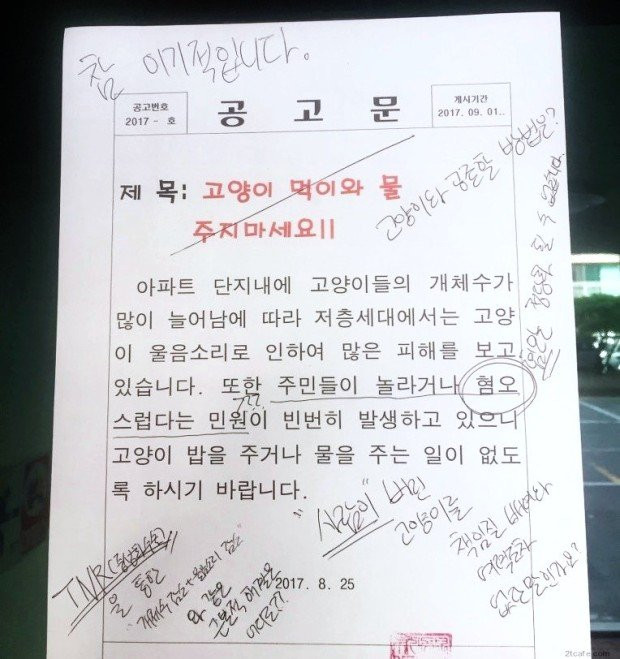 참 이기적입니다.
공고번호
2017 - 호
공 고 문
게시기간
2017. 09. 01..
제 목: 고양이 먹이와 물
주지마세요!!
고양이와 공존할 방법은?
혐오는 정당화 될 수 없습니다.
아파트 단지내에 고양이들의 개체수가
많이 늘어남에 따라 저층세대에서는 고양
이 울음소리로 인하여 많은 피해를 보고
있습니다. 또한 주민들이 놀라거나 혐오
스럽다는 민원이 빈번히 발생하고 있으니
고양이 밥을 주거나 물을 주는 일이 없도
록 하시기 바랍니다.
"사람이" 버린
고양이를
책임질
없단 말인가요?
TNR(중성화수술)
을 통한
"개체수 감소 + 울음소리 감소"
와 같은
근본적 해결은
2017. 8. 25
2tcafe.com